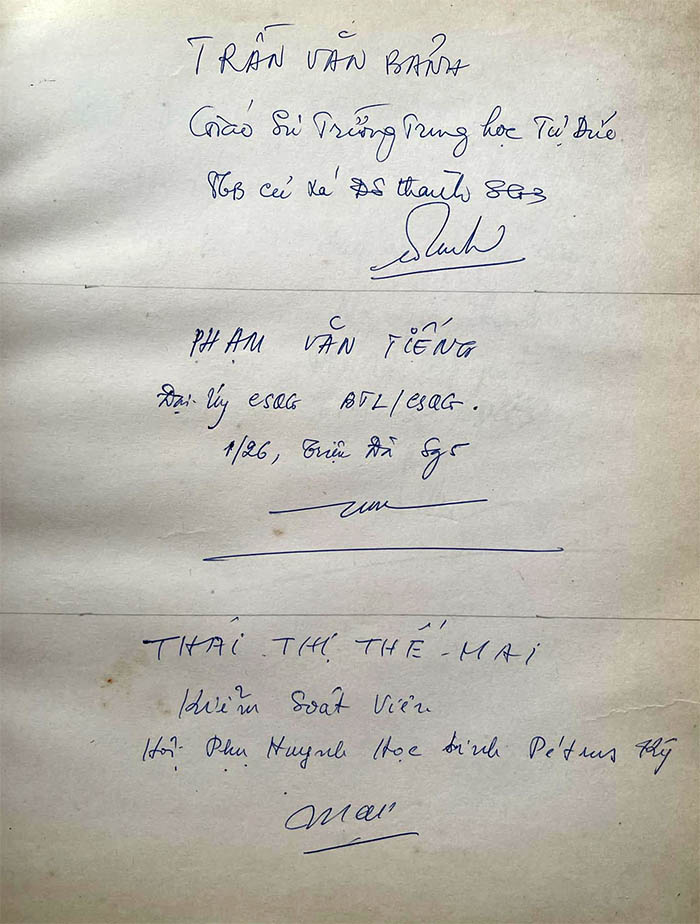 TRẦN VĂN BẢNH
Giáo Sư Trường Trung học Tự Đức
cư xá Đô thành SG3
PHẠM VĂN TIẾNG
Đại Úy CSQG BTL/CSQG.
1/26, Triệu Đà Sg5
THÁI THỊ THẾ-MAI
Kiểm Soát Viên
Hội Phụ Huynh Học Sinh Pétrus Ký
Mai